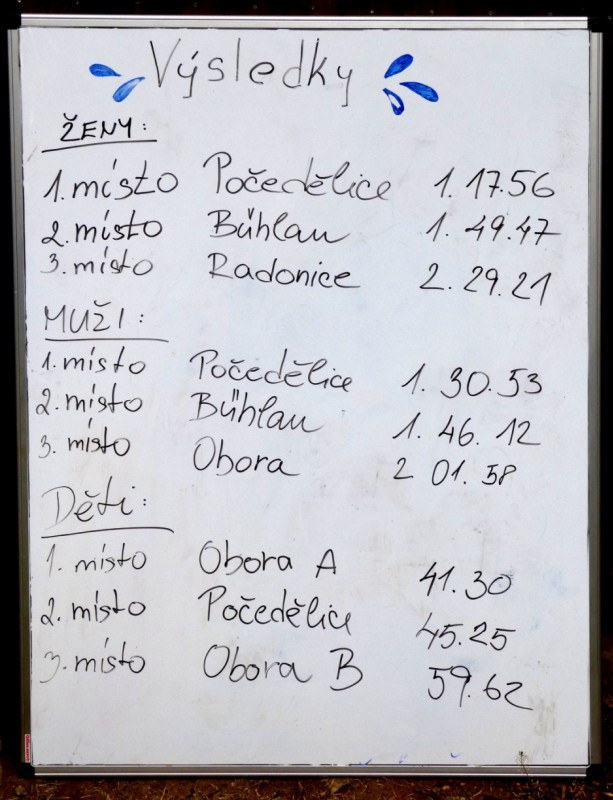 Výsledky
ŽENY:
1. místo Počedělice 1. 17.56
2. místo Bühlau 1. 49.47
3. místo Radonice 2. 29.21
MUŽI:
1. místo Počedělice 1. 30.53
2. místo Bühlau 1. 46. 12
3. místo Obora 2 01. 58
Děti:
1. místo Obora A 41.30
2. místo Počedělice 45.25
3. místo Obora B 59.62